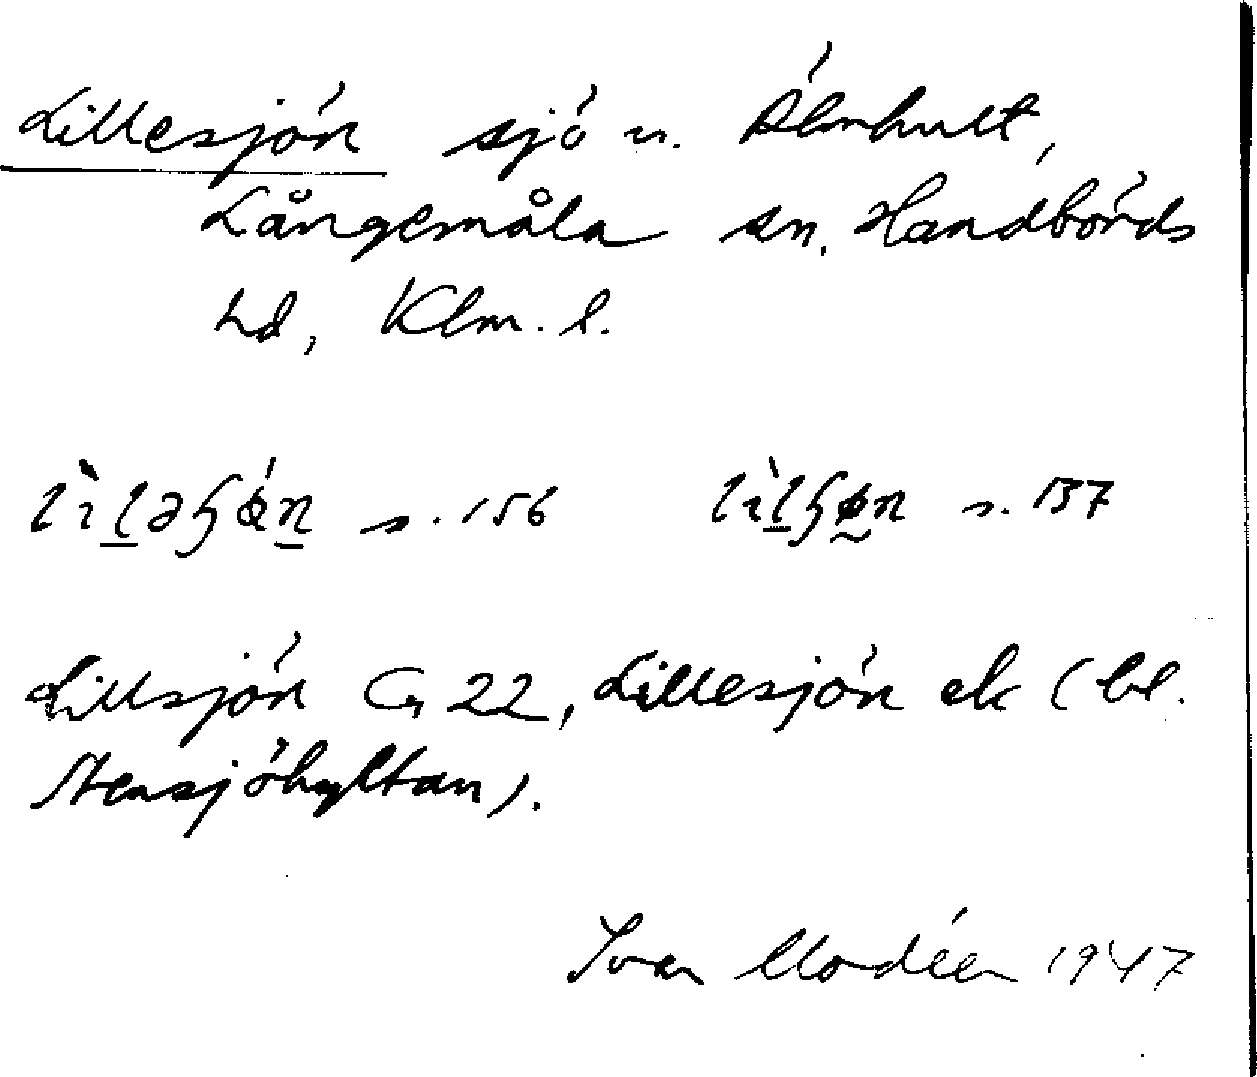 Lillesjön sjö u. Älmhult,
Långemåla sn. Handbörds
hd, Klm. l.
lìləɧǿn s. 156 lìlɧøn s. 137
Lillsjön G 22, Lillesjön ek (bl.
Stensjöhyltan).
Ivar Modéer 1947